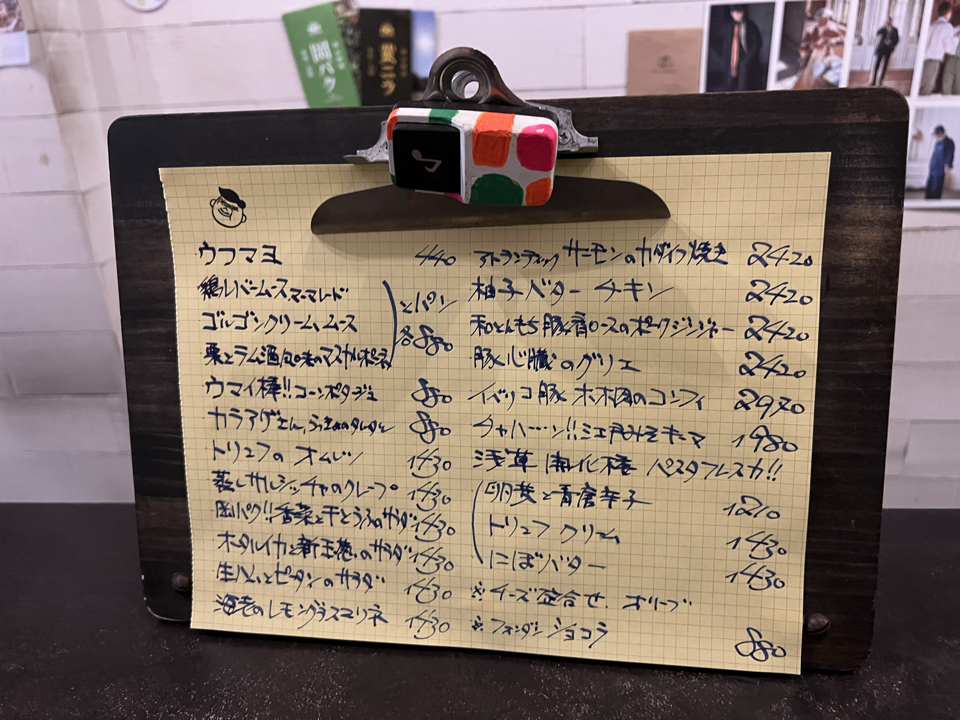 ウフマヨ 440
鶏レバームースマーマレード
ゴルゴンクリームムース
栗とラム酒風味のマスカルポーネ
とパン
各880
ウマイ棒!!コーンポタージュ 880
カラアゲさん、のタルタル 880
トリュフのオムレツ 1430
蒸しサルシッチャのクレープ 1430
岡パク!!香菜と干とうふのサラダ 1430
ホタルイカと新玉葱のサラダ 1430
生ハムとピータンのサラダ 1430
海老のレモングラスマリネ 1430
アトランティックサーモンのカダイフ焼き 2420
柚子バターチキン 2420
和とんもち豚肩ロースのポークジンジャー 2420
豚心臓のグリエ 2420
イベリコ豚ホホ肉のコンフィ 2970
チャハーン!!江戸みそキーマ 1980
浅草開化楼 パスタフレスカ!!
明菜と青唐辛子 1210
トリュフクリーム 1430
にぼバター 1430
※チーズ盛合せ、オリーブ
※フォンダンショコラ 880